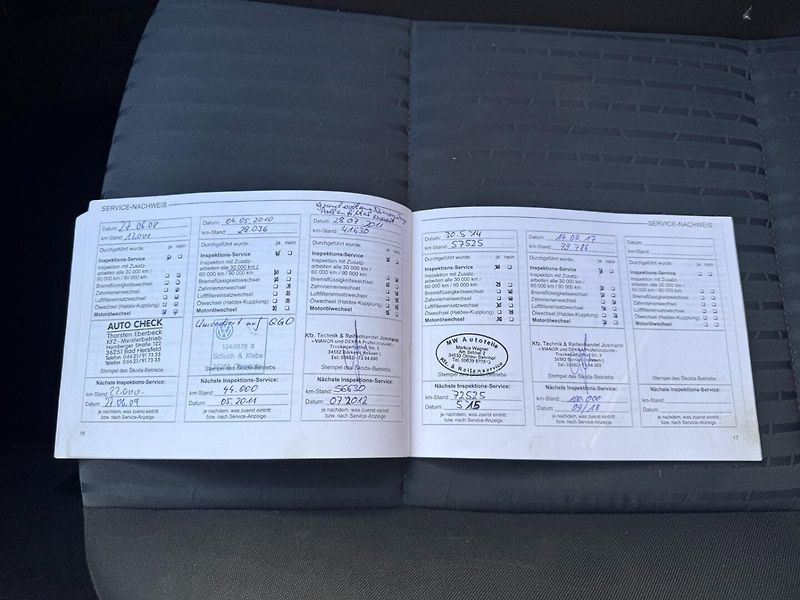 SERVICE-NACHWEIS
Datum: 27.06.08
km-Stand:
Durchgeführt wurde: ja nein
Inspektions-Service
Inspektion mit Zusatz-
arbeiten alle 30 000 km /
60 000 km / 90 000 km
Bremsflüssigkeitswechsel
Zahnriemenwechsel
Luftfiltereinsatzwechsel
Ölwechsel (Haldex-Kupplung)
Motorölwechsel
AUTO CHECK
Thorsten Eberbeck
KFZ - Meisterbetrieb
Homberger Straße 122
36251 Bad Hersfeld
Telefon 0 66 21/91 73 33
Telefax 0 66 21/91 73 55
Nächste Inspektions-Service:
km-Stand:
Datum: 27.06.09
je nachdem, was zuerst eintritt
bzw. nach Service-Anzeige
16
Datum: 04.05.2010
km-Stand: 29.036
Durchgeführt wurde: ja nein
Inspektions-Service
Inspektion mit Zusatz-
arbeiten alle 30 000 km /
60 000 km / 90 000 km
Bremsflüssigkeitswechsel
Zahnriemenwechsel
Luftfiltereinsatzwechsel
Ölwechsel (Haldex-Kupplung)
Motorölwechsel
auf QGO
Schuch & Klebe
Stempel des Škoda-Betriebs
Nächste Inspektions-Service:
km-Stand: 44.000
Datum: 05.2011
je nachdem, was zuerst eintritt
bzw. nach Service-Anzeige
Datum: 28.07.2011
km-Stand: 41630
Durchgeführt wurde: ja nein
Inspektions-Service
Inspektion mit Zusatz-
arbeiten alle 30 000 km /
60 000 km / 90 000 km
Bremsflüssigkeitswechsel
Zahnriemenwechsel
Luftfiltereinsatzwechsel
Ölwechsel (Haldex-Kupplung)
Motorölwechsel
Kfz. Technik & Reifenhandel Jusmann
- VIANOR und DEKRA Prüfstützpunkt -
Stempel des Škoda-Betriebs
Nächste Inspektions-Service:
km-Stand: 56630
Datum: 07.2012
je nachdem, was zuerst eintritt
bzw. nach Service-Anzeige
SERVICE-NACHWEIS
Datum: 30.5.14
km-Stand: 57525
Durchgeführt wurde: ja nein
Inspektions-Service
Inspektion mit Zusatz-
arbeiten alle 30 000 km /
60 000 km / 90 000 km
Bremsflüssigkeitswechsel
Zahnriemenwechsel
Luftfiltereinsatzwechsel
Ölwechsel (Haldex-Kupplung)
Motorölwechsel
MW Autoteile
Markus Wagner
Am Sebbel 2
34633 Ottrau-Bahnhof
Kfz- & Reifenservice
Stempel des Škoda-Betriebs
Nächste Inspektions-Service:
km-Stand: 72525
Datum: 5 15
je nachdem, was zuerst eintritt
bzw. nach Service-Anzeige
Datum: 14.09.17
km-Stand: 79.786
Durchgeführt wurde: ja nein
Inspektions-Service
Inspektion mit Zusatz-
arbeiten alle 30 000 km /
60 000 km / 90 000 km
Bremsflüssigkeitswechsel
Zahnriemenwechsel
Luftfiltereinsatzwechsel
Ölwechsel (Haldex-Kupplung)
Motorölwechsel
Kfz. Technik & Reifenhandel Jusmann
- VIANOR und DEKRA Prüfstützpunkt -
Stempel des Škoda-Betriebs
Nächste Inspektions-Service:
km-Stand: 100.000
Datum: 09/18
je nachdem, was zuerst eintritt
bzw. nach Service-Anzeige
Datum:
km-Stand:
Durchgeführt wurde: ja nein
Inspektions-Service
Inspektion mit Zusatz-
arbeiten alle 30 000 km /
60 000 km / 90 000 km
Bremsflüssigkeitswechsel
Zahnriemenwechsel
Luftfiltereinsatzwechsel
Ölwechsel (Haldex-Kupplung)
Motorölwechsel
Stempel des Škoda-Betriebs
Nächste Inspektions-Service:
km-Stand:
Datum:
je nachdem, was zuerst eintritt
bzw. nach Service-Anzeige
17